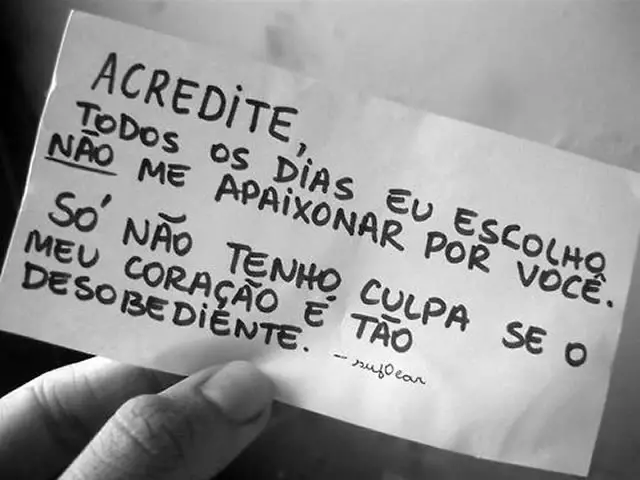 ACREDITE,
TODOS OS DIAS EU ESCOLHO
NÃO ME APAIXONAR POR VOCÊ.
SÓ NÃO TENHO CULPA SE O
MEU CORAÇÃO É TÃO
DESOBEDIENTE.